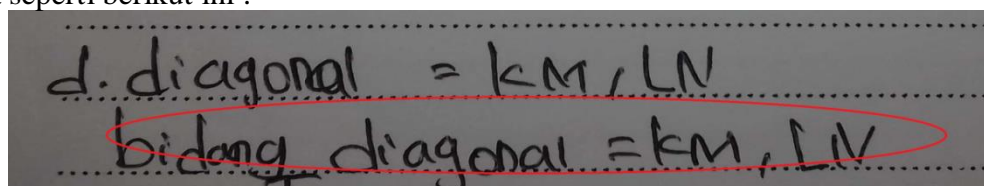 seperti berikut ini :
d. diagonal = KM, LN
bidang diagonal = KM, LN